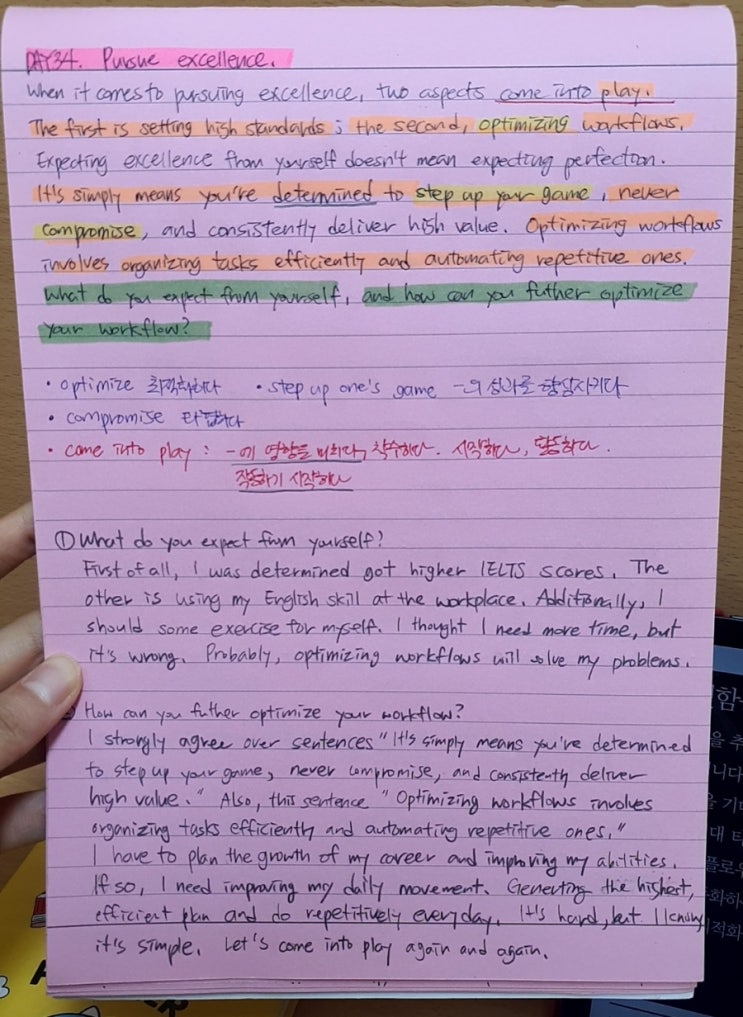 DAY34. Pursue excellence.
When it comes to pursuing excellence, two aspects come into play.
The first is setting high standards ; the second, optimizing workflows.
Expecting excellence from yourself doesn't mean expecting perfection.
It's simply means you're determined to step up your game, never
compromise, and consistently deliver high value. Optimizing workflows
involves organizing tasks efficiently and automating repetitive ones.
What do you expect from yourself, and how can you futher optimize
your workflow?
• optimize 최적화하다 • step up one's game -의 성과를 향상시키다
• compromise 타협하다
• come into play : -에 영향을 미치다, 착수하다. 시작하다, 활동하다.
작동하기 시작하다
① What do you expect from yourself?
First of all, I was determined got higher IELTS scores. The
other is using my English skill at the workplace. Additionally, I
should some exercise for myself. I thought I need more time, but
it's wrong. Probably, optimizing workflows will solve my problems.
How can you futher optimize your workflow?
I strongly agree over sentences "It's simply means you're determined
to step up your game, never compromise, and consistently deliver
high value." Also, this sentence "Optimizing workflows involves
organizing tasks efficiently and automating repetitive ones."
I have to plan the growth of my career and improving my abilities.
If so, I need improving my daily movement. the highest,
efficient plan and do repetitively everyday. It's hard, but I know
it's simple. Let's come into play again and again.